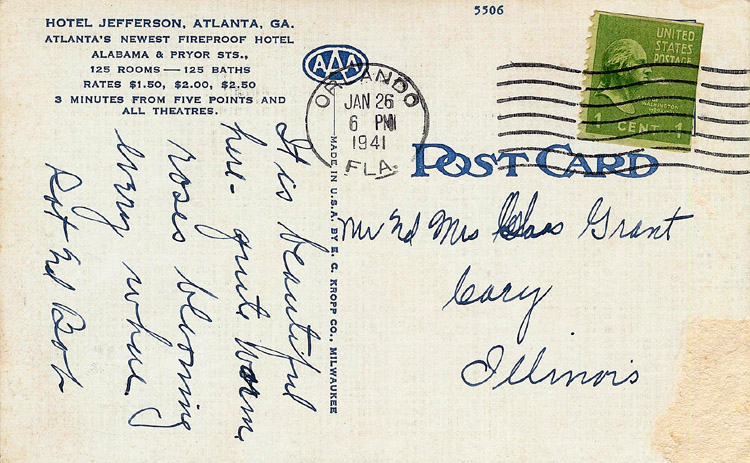 HOTEL JEFFERSON, ATLANTA, GA.
ATLANTA'S NEWEST FIREPROOF HOTEL
ALABAMA & PRYOR STS.,
125 ROOMS — 125 BATHS
RATES $1.50, $2.00, $2.50
3 MINUTES FROM FIVE POINTS AND
ALL THEATRES.
AAA
5506
ORLANDO
JAN 26
6 PM
1941
FLA.
UNITED
STATES
POSTAGE
WASHINGTON
1 CENT 1
POST CARD
MADE IN U.S.A. BY E. C. KROPP CO., MILWAUKEE
It is beautiful
here - quite warm,
roses blooming
every where
Bob
Mr Mrs Grant
Cary
Illinois